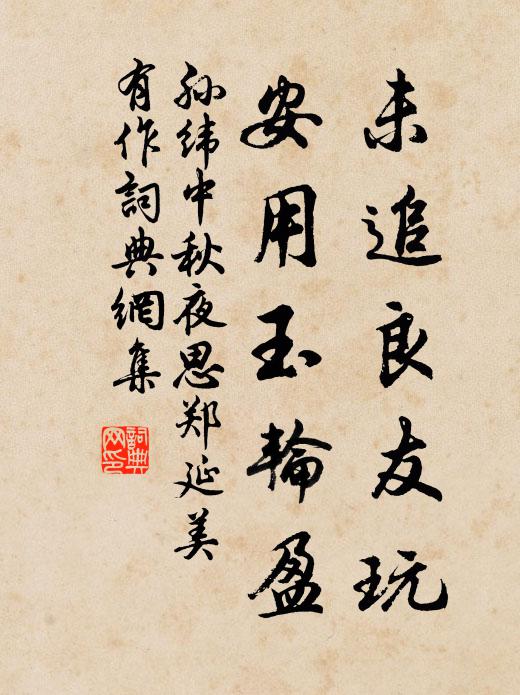 未追良友玩
安用玉輪盈
孙纬中秋夜思郑延美
有作詞典網集
詞典網印